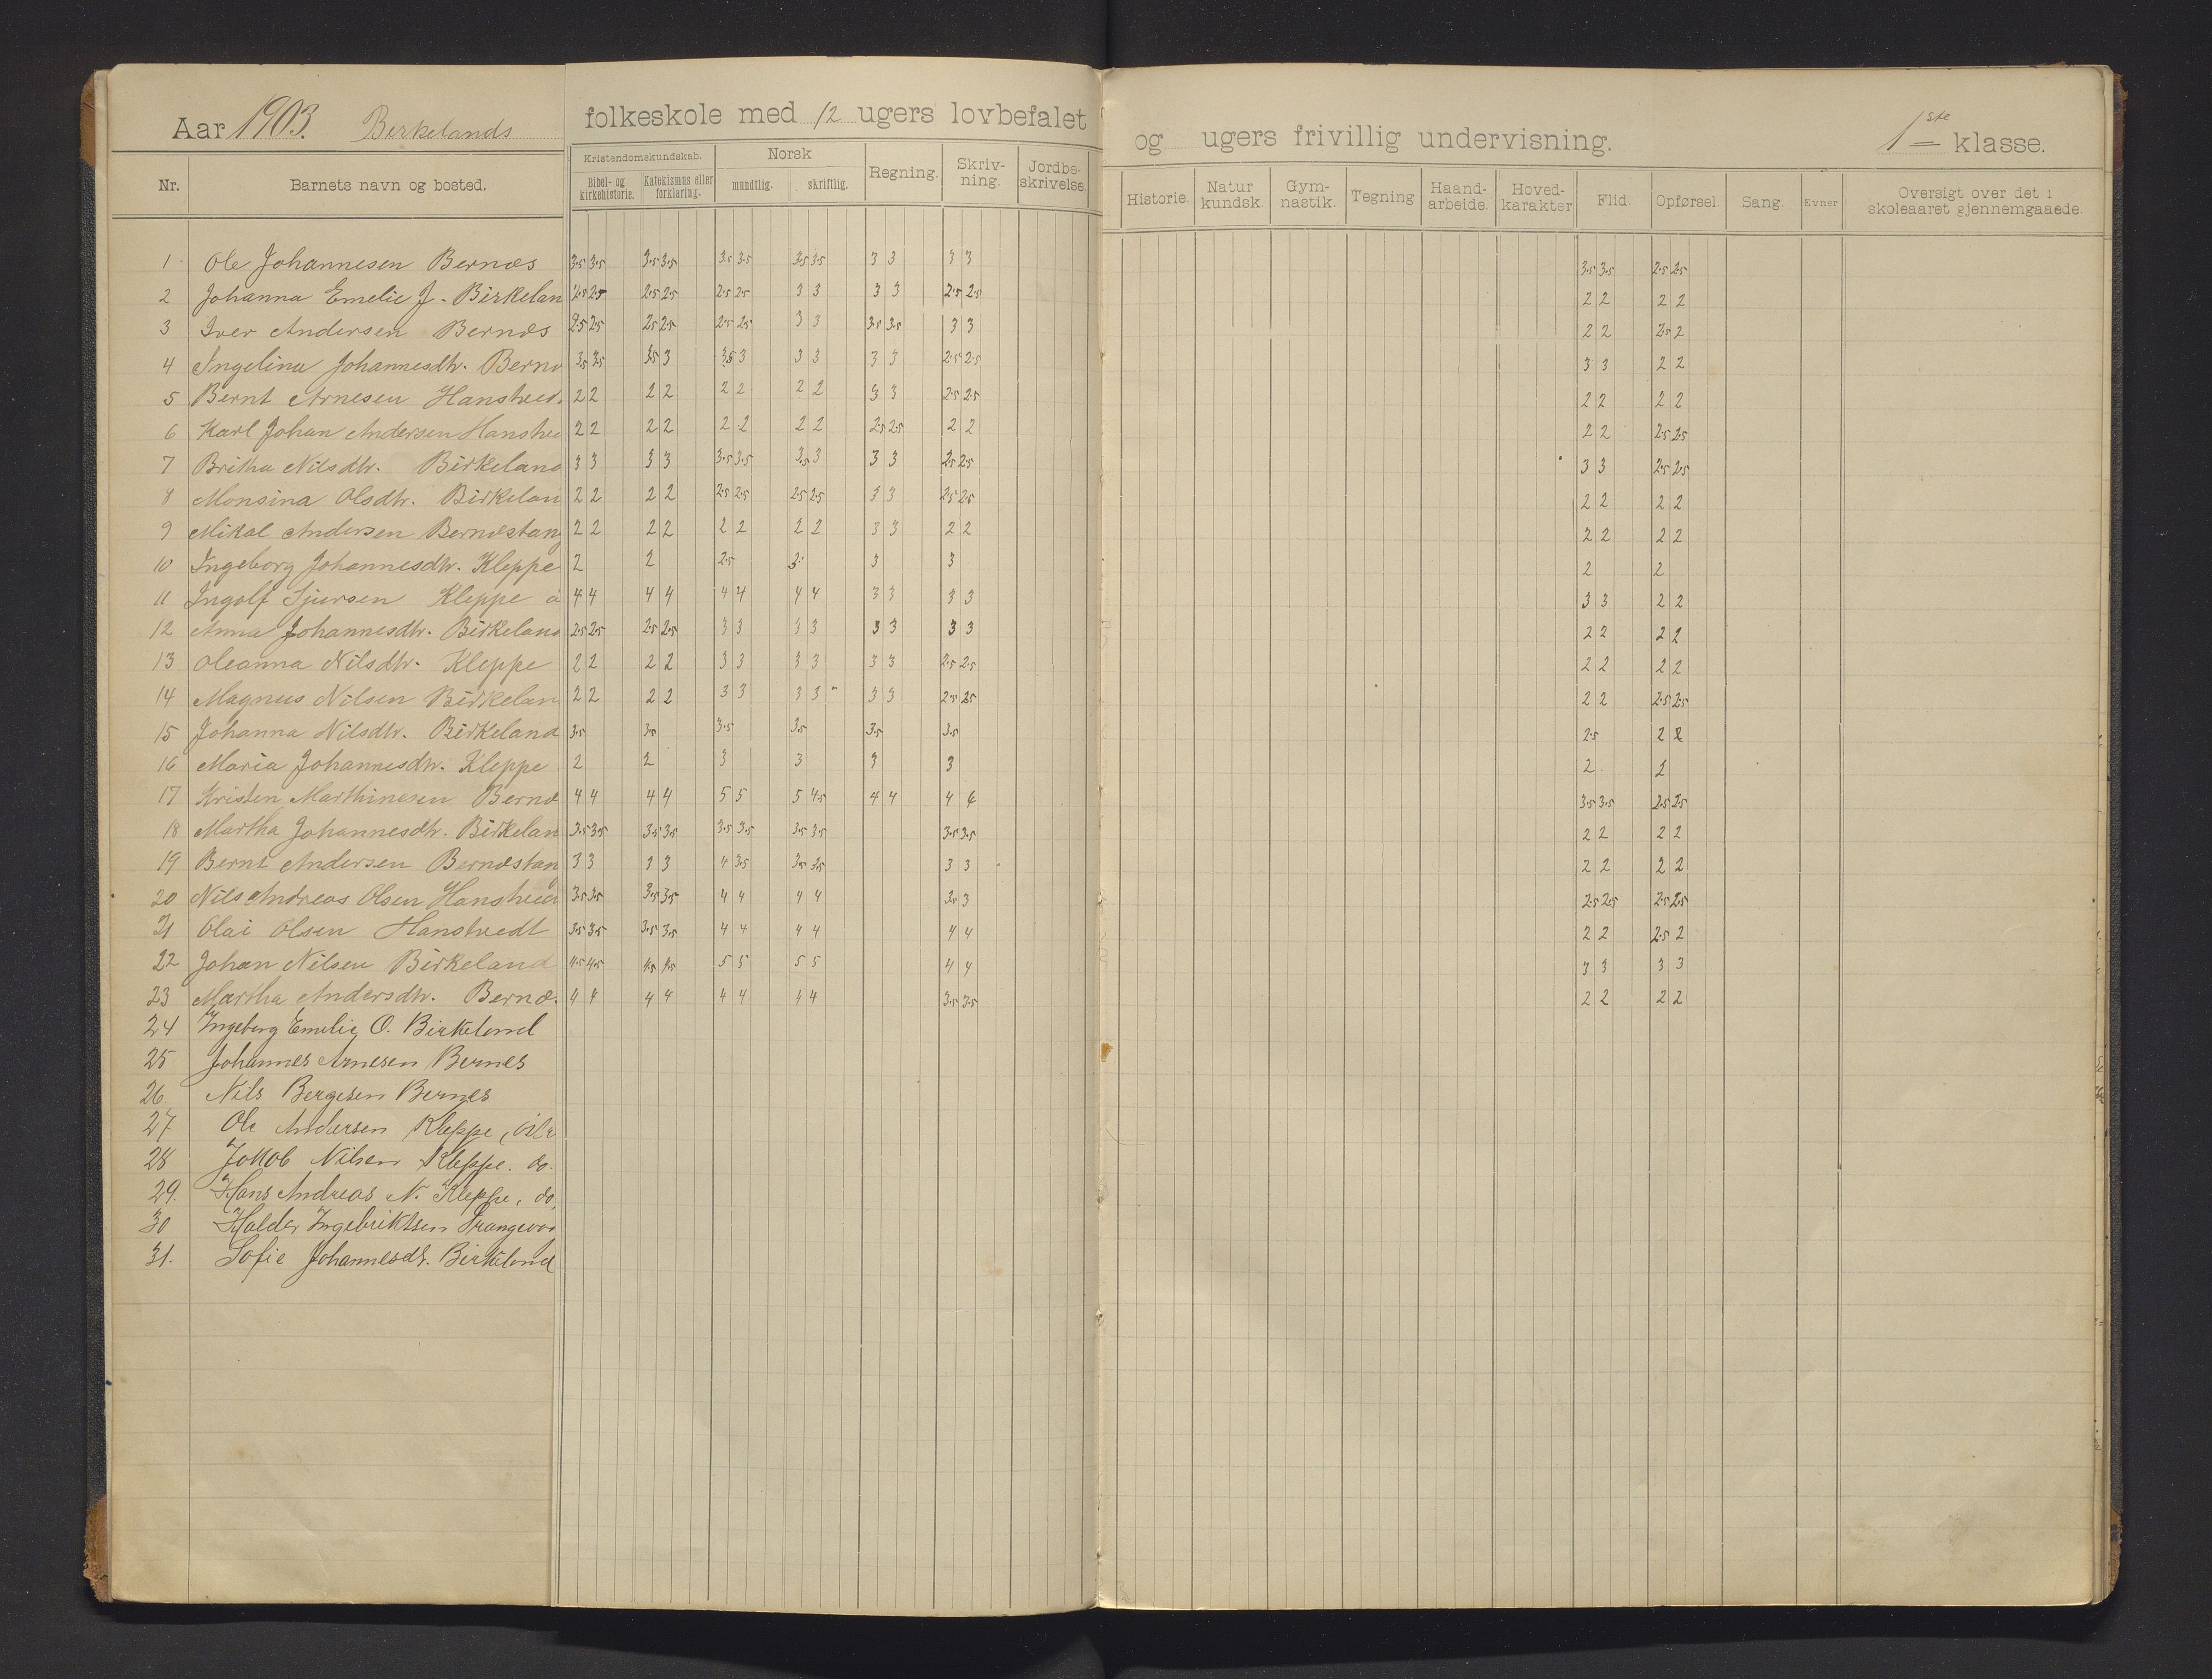 Aar 1903. Birkelands folkeskole med 12 ugers lovbefalet og ugers frivillig undervisning. 1ste klasse.
Nr. Barnets navn og bosted. Kristendomskundskab. Bibel- og kirkehistorie. Katekismus eller forklaring. Norsk mundtlig. skriftlig. Regning. Skriv-ning. Jordbe-skrivelse. Historie. Natur kundsk. Gym-nastik. Tegning Haand-arbeide. Hoved-karakter Flid. Opførsel. Sang. Evner Oversigt over det i skoleaaret gjennemgaaede.
1 Ole Johannesen Bernæs 3.5 3.5 3.5 3.5 3.5 3.5 3.5 3.5 3 3 3 3 3.5 3.5 2.5 2.5
2 Johanna Emelie J. Birkelan 2.5 2.5 2.5 2.5 2.5 2.5 3 3 3 3 2.5 2.5 2 2 2 2
3 Iver Andersen Bernæs 2.5 2.5 2.5 2.5 2.5 2.5 3 3 3.5 3.5 3 3 2 2 2.5 2
4 Ingelina Johannesdtr. Bernæ 3.5 3.5 3.5 3 3.5 3 3 3 3 3 2.5 2.5 3 3 2 2
5 Bernt Arnesen Hanstved. 2 2 2 2 2 2 2 2 3 3 2.5 2.5 2 2 2 2
6 Karl Johan Andersen Hanstve 2 2 2 2 2 2 2 2 2.5 2.5 2 2 2 2 2.5 2.5
7 Britha Nilsdtr. Birkeland 3 3 3 3 3.5 3.5 3.5 3 3 3 2.5 2.5 3 3 2.5 2.5
8 Monsina Olsdtr. Birkelan 2 2 2 2 2.5 2.5 2.5 2.5 3 3 2.5 2.5 2 2 2 2
9 Mikal Andersen Bernæstang 2 2 2 2 2 2 2 2 3 3 2 2 2 2 2 2
10 Ingeborg Johannesdtr. Kleppe 2 2 2.5 3 3 3 2 2
11 Ingolf Sjursen Kleppe 4 4 4 4 4 4 4 4 3 3 3 3 3 3 2 2
12 Anna Johannesdtr. Birkeland 2.5 2.5 2.5 2.5 3 3 3 3 3 3 3 3 2 2 2 2
13 Oleanna Nilsdtr. Kleppe 2 2 2 2 3 3 3 3 3 3 2.5 2.5 2 2 2 2
14 Magnus Nilsen Birkelan 2 2 2 2 3 3 3 3 3 3 2.5 2.5 2 2 2.5 2.5
15 Johanna Nilsdtr. Birkeland 3.5 3.5 3.5 3.5 3.5 3.5 2.5 2 2
16 Maria Johannesdtr. Kleppe 2 2 3 3 3 3 2 2
17 Kristen Marthinesen Bernæ 4 4 4 4 5 5 5 4.5 4 4 4 4 3.5 3.5 2.5 2.5
18 Martha Johannesdtr. Birkelan 3.5 3.5 3.5 3.5 3.5 3.5 3.5 3.5 3.5 3.5 2 2 2 2
19 Bernt Andersen Bernæstan 3 3 3 3 4 3.5 3.5 3.5 3 3 2 2 2 2
20 Nils Andreas Olsen Hanstved 3.5 3.5 3.5 3.5 4 4 4 4 3 2.5 2.5 2.5 2.5
21 Olai Olsen Hanstvedt 3.5 3.5 3.5 3.5 4 4 4 4 4 4 2 2 2.5 2
22 Johan Nilsen Birkeland 4.5 4.5 4.5 4.5 5 5 5 5 4 4 3 3 3 3
23 Martha Andersdtr. Bernæ. 4 4 4 4 4 4 4 4 3.5 3.5 2 2 2 2
24 Ingeborg Emelie O. Birkeland
25 Johannes Arnesen Bernes
26. Nils Bergesen Bernes
27 Ole Andersen Kleppe,
28 Jakob Nilsen Kleppe. do.
29. Hans Andreas N. Kleppe, do,
30 Haldor Ingebriktsen
31. Sofie Johannesdt. Birkeland